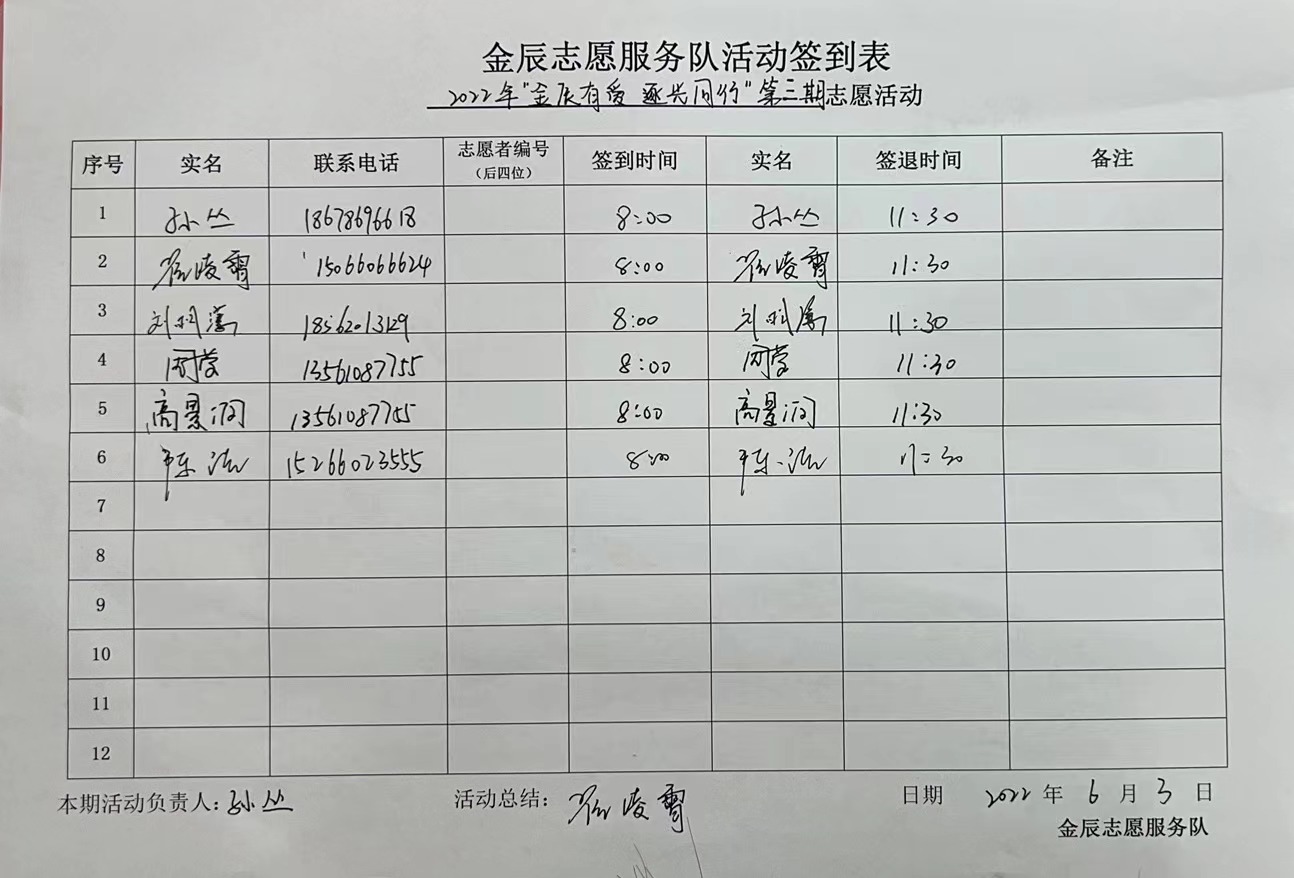 金辰志愿服务队活动签到表
2022年"金辰有爱 逐光同行"第三期志愿活动
序号 实名 联系电话 志愿者编号(后四位) 签到时间 实名 签退时间 备注
1 孙丛 18678696618 8:00 孙丛 11:30
2 凌霄 15066066624 8:00 凌霄 11:30
3 刘 18562013129 8:00 刘 11:30
4 周莹 13561087755 8:00 周莹 11:30
5 高景润 13561087755 8:00 高景润 11:30
6 15266023555 8:00 11:30
7
8
9
10
11
12
本期活动负责人:孙丛 活动总结: 凌霄 日期 2022 年 6 月 3 日
金辰志愿服务队